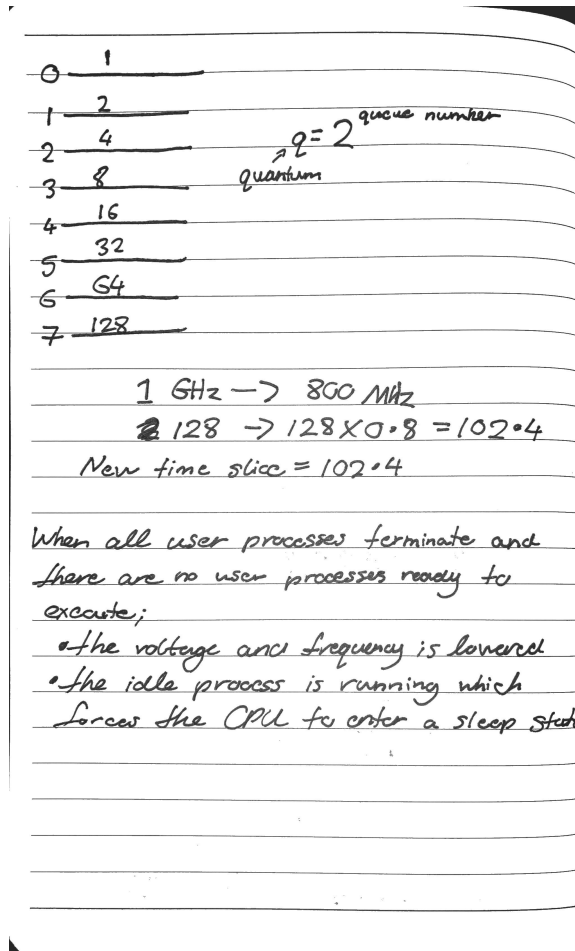 0 1
1 2
2 4
q = 2 queue number
quantum
3 8
4 16
5 32
6 64
7 128
1 GHz -> 800 MHz
128 -> 128 X 0.8 = 102.4
New time slice = 102.4
When all user processes terminate and
there are no user processes ready to
execute;
• the voltage and frequency is lowered
• the idle process is running which
forces the CPU to enter a sleep